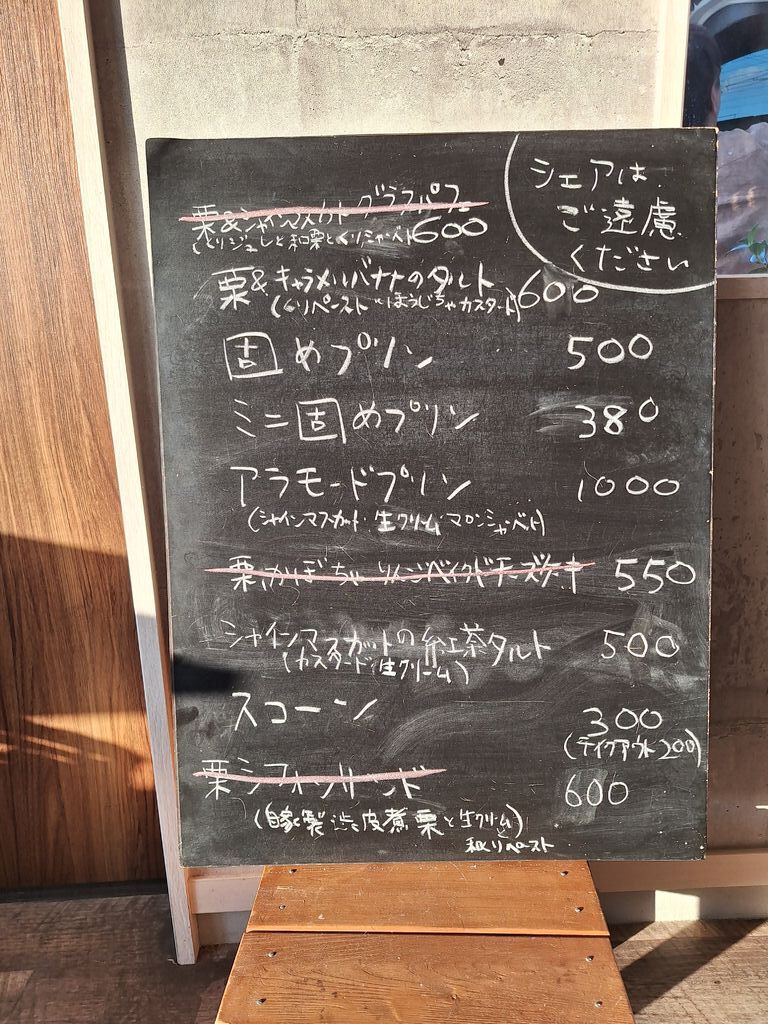 シェアは
ご遠慮
ください
栗&シャインマスカットグラスパフェ
600
栗&キャラメルバナナのタルト 600
(くりペースト ほうじちゃカスタード)
固めプリン 500
ミニ固めプリン 380
アラモードプリン 1000
(シャインマスカット・生クリーム・マロンシャーベット)
栗、かぼちゃ りんごベイクドチーズケーキ 550
シャインマスカットの紅茶タルト 500
(カスタード・生クリーム)
スコーン 300
(テイクアウト200)
栗シフォンサンド 600
(自家製渋皮煮栗と生クリーム)
と
和くりペースト